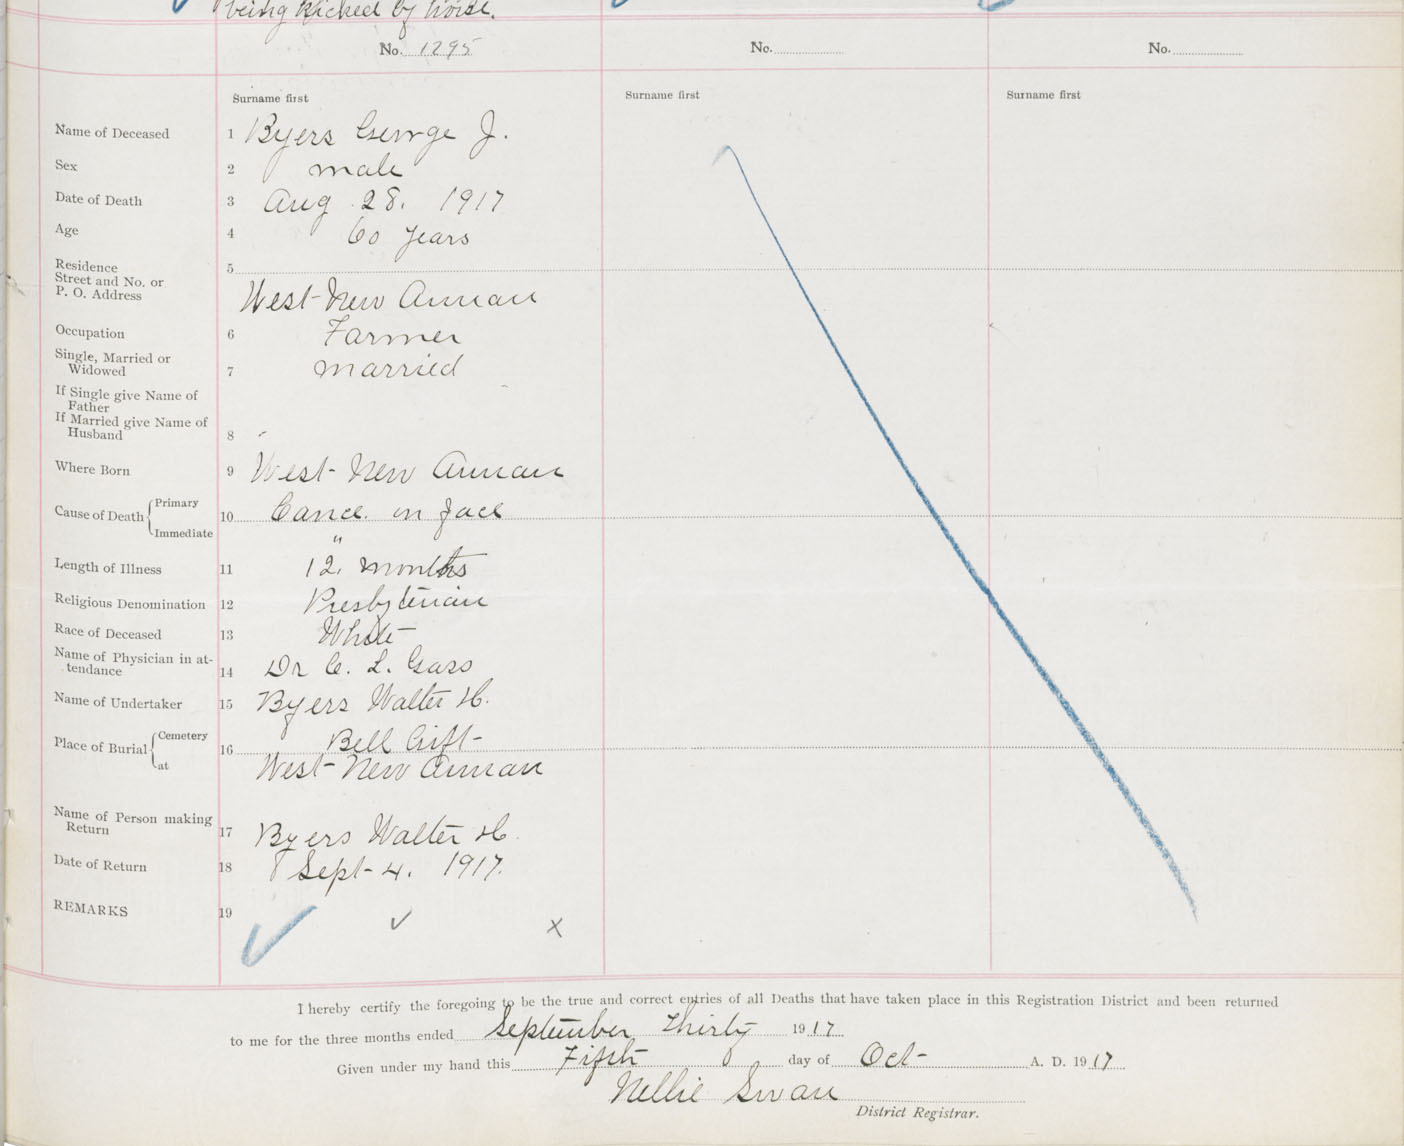 being kicked by horse.
No. 1295 No. No.
Surname first Surname first Surname first
Name of Deceased 1 Byers George J.
Sex 2 male
Date of Death 3 Aug. 28. 1917
Age 4 60 years
Residence 5
Street and No. or
P. O. Address West New Annan
Occupation 6 Farmer
Single, Married or
Widowed 7 married
If Single give Name of
Father
If Married give Name of
Husband 8
Where Born 9 West New Annan
Cause of Death { Primary
10 Cance. in face
Immediate "
Length of Illness 11 12. months
Religious Denomination 12 Presbyterian
Race of Deceased 13 White
Name of Physician in at-
tendance 14 Dr C. L. Gass
Name of Undertaker 15 Byers Walter H.
Place of Burial { Cemetery Bell Grift
16
at West New Annan
Name of Person making
Return 17 Byers Walter H.
Date of Return 18 Sept 4. 1917.
REMARKS 19
I hereby certify the foregoing to be the true and correct entries of all Deaths that have taken place in this Registration District and been returned
to me for the three months ended September Thirty 1917
Given under my hand this Fifth day of Oct A. D. 1917
Nellie Swan
District Registrar.